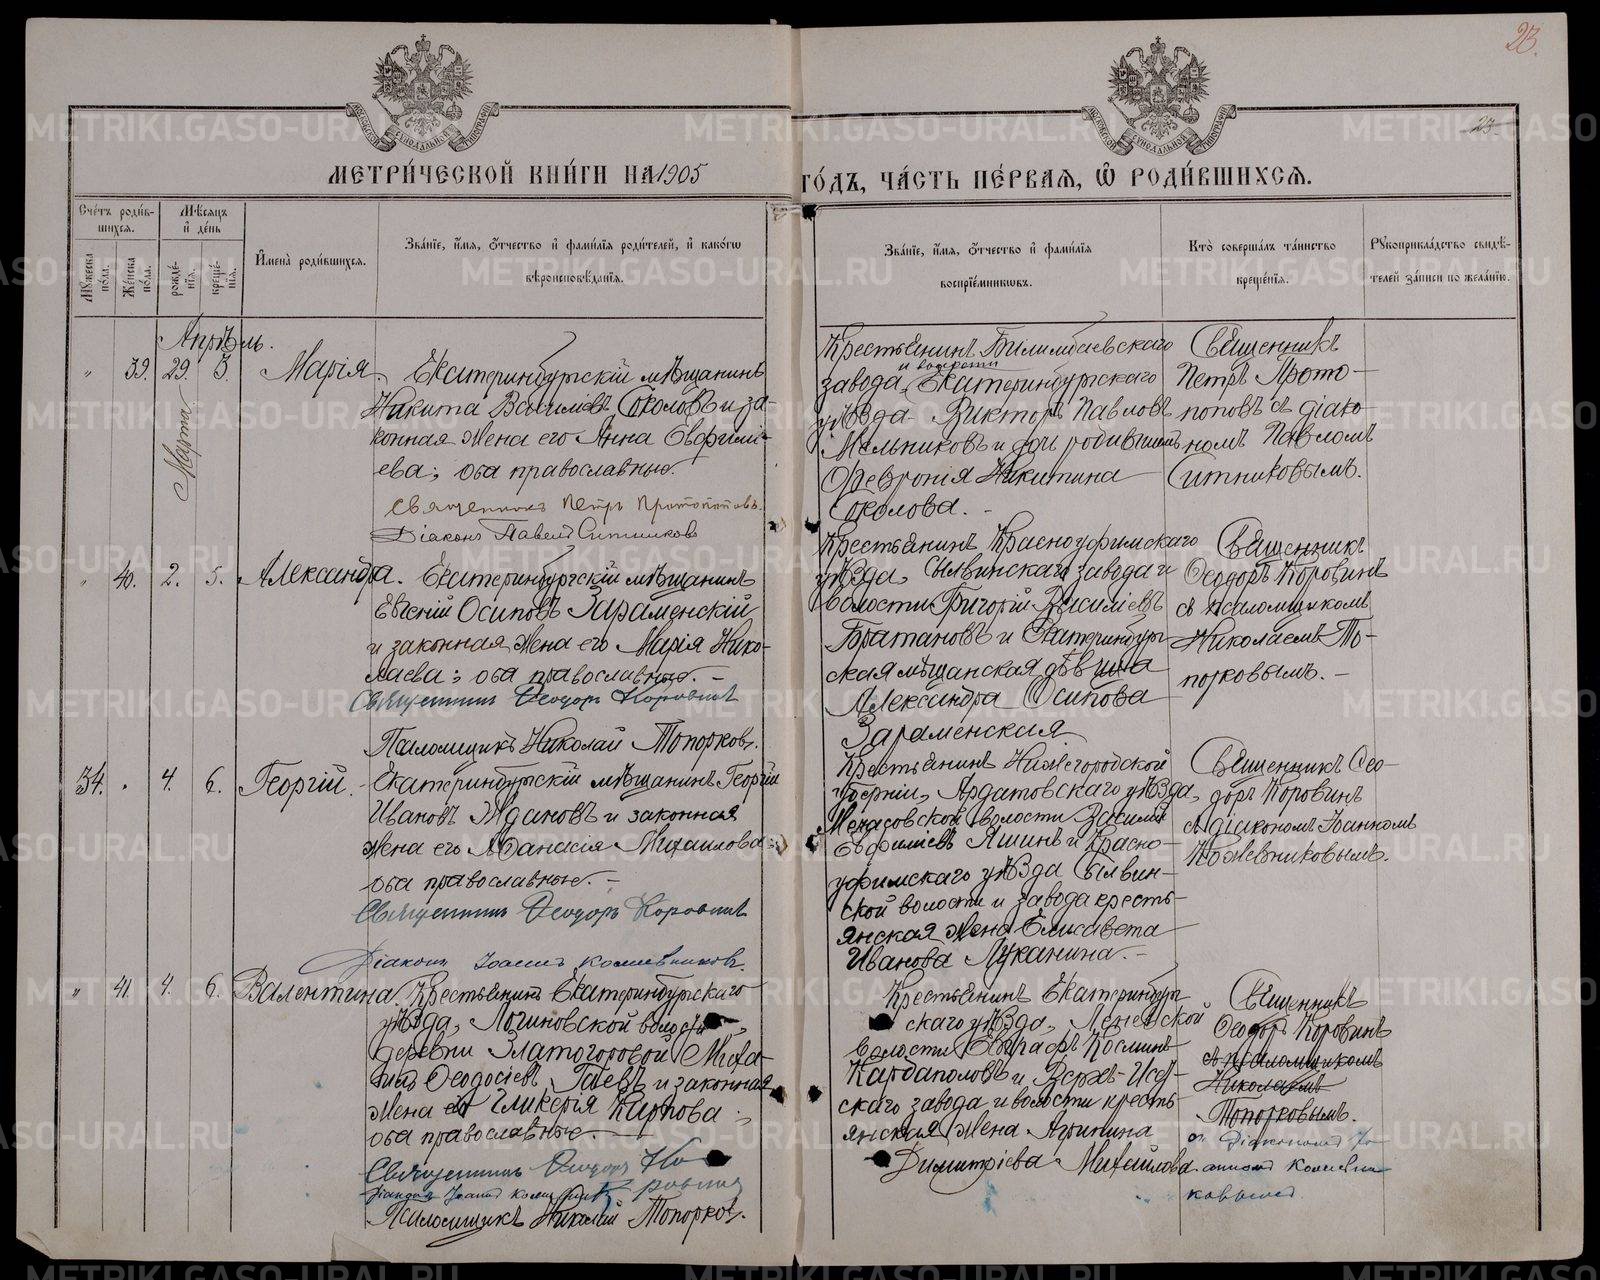 23.
23.
МЕТРИ́ЧЕСКОЙ КНИ́ГИ НА 1905 ГО́ДЪ, ЧА́СТЬ ПЕ́РВАЯ, Ѡ РОДИ́ВШИХСЯ.
Сче́тъ роди́вшихся.
Мꙋ́жеска по́ла.
Же́нска по́ла.
Мѣ́сяцъ и҆ де́нь
рожде́нїя.
креще́нїя.
И҆мена̀ роди́вшихся.
Зва́нїе, и҆́мя, ѻ҆́тчество и҆ фами́лїя роди́телей, и҆ како́гѡ вѣроисповѣ́данїя.
Зва́нїе, и҆́мя, ѻ҆́тчество и҆ фами́лїя воспрїе́мникѡвъ.
Кто̀ соверша́лъ та́инство креще́нїя.
Рꙋкоприкла́дство свидѣ́телей за́писи по жела́нїю.
Апрѣль.
" 39. 29. 3. Марія.
Марта
Екатеринбургскій мѣщанинъ
Никита Василіевъ Соколовъ и за-
конная жена его Анна Евфимі-
ева; оба православные.
Священникъ Петръ Протопоповъ.
Діаконъ Павелъ Ситниковъ
Крестьянинъ Билимбаевскаго
завода, Екатеринбургскаго
уѣзда Викторъ Павловъ
Мельниковъ и дочь родившихъ
Февронія Никитина
Соколова.
Священникъ
Петръ Прото-
поповъ съ діако-
номъ Павломъ
Ситниковымъ.
" 40. 2. 5. Александра.
Екатеринбургскій мѣщанинъ
Евгеній Осиповъ Зараменскій
и законная жена его Марія Нико-
лаева; оба православные.
Священникъ Ѳеодоръ Коровинъ
Псаломщикъ Николай Топорковъ.
Крестьянинъ Красноуфимскаго
уѣзда, Сылвинскаго завода и
волости Григорій Василіевъ
Братановъ и Екатеринбург-
ская мѣщанская дѣвица
Александра Осипова
Зараменская
Священникъ
Ѳеодоръ Коровинъ
съ псаломщикомъ
Николаемъ То-
порковымъ.
34. " 4. 6. Георгій.
Екатеринбургскій мѣщанинъ Георгій
Ивановъ Ждановъ и законная
жена его Аѳанасія Михаилова
оба православные.
Священникъ Ѳеодоръ Коровинъ
Діаконъ Іоаннъ Кожевниковъ.
Крестьянинъ Нижегородской
губерніи, Ардатовскаго уѣзда,
волости Василій
Евфиміевъ Яшинъ и Красно-
уфимскаго уѣзда Сылвин-
ской волости и завода кресть-
янская жена Елисавета
Иванова Луканина.
Священникъ Ѳео-
доръ Коровинъ
съ діакономъ Іоанномъ
Кожевниковымъ.
" 41. 4. 6. Валентина.
Крестьянинъ Екатеринбургскаго
уѣзда, Логиновской волости,
деревни Златогоровой Миха-
илъ Ѳеодосіевъ Гаевъ и законная
жена его Гликерія Карпова;
оба православные.
Священникъ Ѳеодоръ Ко-
ровинъ
Діаконъ Іоаннъ Кожевниковъ
Псаломщикъ Николай Топорковъ.
Крестьянинъ Екатеринбург-
скаго уѣзда,
волости Евграфъ Косминъ
Кардаполовъ и Верхъ-Исет-
скаго завода и волости кресть-
янская жена Агрипина
Димитріева Михайлова.
Священникъ
Ѳеодоръ Коровинъ
съ псаломщикомъ
Николаемъ
Топорковымъ.
съ діакономъ Іо-
анномъ Кожевни-
ковымъ
METRIKI.GASO-URAL.RU